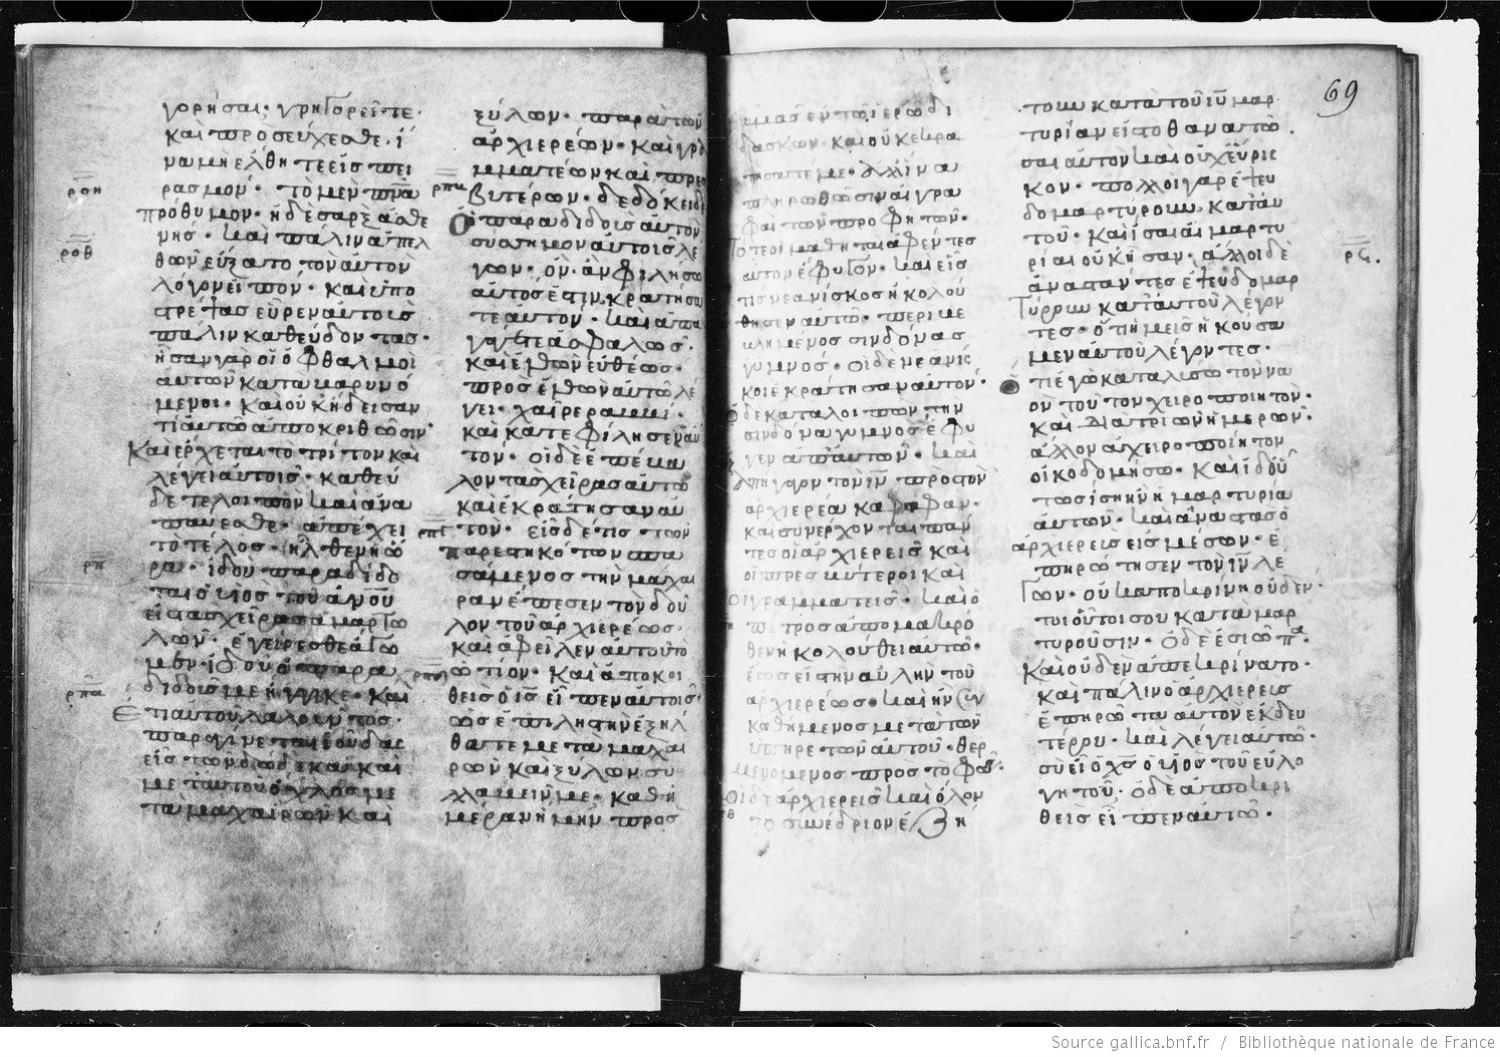 γορῆσαι· γρηγορεῖτε·
καὶ προσεύχεσθε· ἵ
να μὴ ἔλθητε εἰς πει
ρασμόν· τὸ μὲν πνα
πρόθυμον· ἡ δὲ σὰρξ ἀσθε
νής· καὶ πάλιν ἀπελ
θὼν εὔξατο τὸν αὐτὸν
λόγον εἰπών· καὶ ὑπο
στρέψας εὗρεν αὐτοὺς
πάλιν καθεύδοντας·
ἦσαν γὰρ οἱ ὀφθαλμοὶ
αὐτῶν καταβαρυνό
μενοι· καὶ οὐκ ᾔδεισαν
τί αὐτῷ ἀποκριθῶσιν·
Καὶ ἔρχεται τὸ τρίτον καὶ
λέγει αὐτοῖς· καθεύ
δετε λοιπὸν καὶ ἀνα
παύεσθε· ἀπέχει
τὸ τέλος· ἦλθεν ἡ ὥ
ρα· ἰδοὺ παραδίδο
ται ὁ υἱὸς τοῦ ανου
εἰς τὰς χεῖρας ἁμαρτω
λῶν· ἐγείρεσθε ἄγω
μεν· ἰδοὺ ὁ παρα
διδούς με ἤγγικε· καὶ
Ἔτι αὐτοῦ λαλοῦντος·
παραγίνεται ἰούδας
εἷς τῶν δώδεκα· καὶ
μετ' αὐτοῦ ὄχλος με
τὰ μαχαιρῶν καὶ
ξύλων· παρὰ τῶν
ἀρχιερέων· καὶ γρα
μματέων καὶ πρεσ
βυτέρων· δεδώκει δὲ
Ὁ παραδιδοὺς αὐτὸν
σύσσημον αὐτοῖς λέ
γων· ὃν ἂν φιλήσω
αὐτός ἐστιν κρατήσα
τε αὐτόν· καὶ ἀπα
γάγετε ἀσφαλῶς·
καὶ ἐλθὼν εὐθέως·
προσελθὼν αὐτῷ λέ
γει· χαῖρε ραββί·
καὶ κατεφίλησεν αὐ
τόν· οἱ δὲ ἐπέβα
λον τὰς χεῖρας αὐτῷ
καὶ ἐκράτησαν αὐ
τόν· εἷς δέ τις τῶν
παρεστηκότων σπα
σάμενος τὴν μάχαι
ραν ἔπεσεν τὸν δοῦ
λον τοῦ ἀρχιερέως·
καὶ ἀφεῖλεν αὐτοῦ τὸ
ὠτίον· καὶ ἀποκρι
θεὶς ὁ ις εἶπεν αὐτοῖς·
ὡς ἐπὶ λῃστὴν ἐξήλ
θατε μετὰ μαχαι
ρῶν καὶ ξύλων συ
λλαβεῖν με· καθ' ἡ
μέραν ἤμην πρὸς
ὑμᾶς ἐν τῷ ἱερῷ δι
δάσκων· καὶ οὐκ ἐκρα
τήσατέ με· ἀλλ' ἵνα
πληρωθῶσιν αἱ γρα
φαὶ τῶν προφητῶν·
Τότε οἱ μαθηταὶ ἀφέντες
αὐτὸν ἔφυγον· καὶ εἷς
τις νεανίσκος ἠκολού
θησεν αὐτῷ· περιβε
βλημένος σινδόνα ἐπὶ
γυμνοῦ· οἱ δὲ νεανίσ
κοι ἐκράτησαν αὐτόν·
ὁ δὲ καταλιπὼν τὴν
σινδόνα γυμνὸς ἔφυ
γεν ἀπ' αὐτῶν· καὶ
ἀπήγαγον τὸν ιν πρὸς τὸν
ἀρχιερέα καϊάφαν·
καὶ συνέρχονται πάν
τες οἱ ἀρχιερεῖς καὶ
οἱ πρεσβύτεροι καὶ
οἱ γραμματεῖς· καὶ ὁ
πέτρος ἀπὸ μακρό
θεν ἠκολούθει αὐτῷ·
ἕως εἰς τὴν αὐλὴν τοῦ
ἀρχιερέως· καὶ ἦν συγ
καθήμενος μετὰ τῶν
ὑπηρετῶν αὐτοῦ· θερ
μαινόμενος πρὸς τὸ φῶς·
Οἱ δὲ ἀρχιερεῖς καὶ ὅλον
τὸ συνέδριον ἐζή
τουν κατὰ τοῦ ιυ μαρ
τυρίαν εἰς τὸ θανατῶ
σαι αὐτὸν καὶ οὐχ εὕρισ
κον· πολλοὶ γὰρ ἐψευ
δομαρτύρουν κατ' αὐ
τοῦ· καὶ ἴσαι αἱ μαρτυ
ρίαι οὐκ ἦσαν· ἄλλοι δὲ
ἀναστάντες ἐψευδομαρ
τύρουν κατ' αὐτοῦ λέγον
τες· ὅτι ἡμεῖς ἠκούσα
μεν αὐτοῦ λέγοντες·
ὅτι ἐγὼ καταλύσω τὸν να
ὸν τοῦτον χειροποίητον·
καὶ διὰ τριῶν ἡμερῶν·
ἄλλον ἀχειροποίητον
οἰκοδομήσω· καὶ οὐδ' οὕ
τως ἴση ἦν ἡ μαρτυρία
αὐτῶν· καὶ ἀναστὰς ὁ
ἀρχιερεὺς εἰς μέσον· ἐ
πηρώτησεν τὸν ιν λέ
γων· οὐκ ἀποκρίνῃ οὐδέν·
τί οὗτοί σου καταμαρ
τυροῦσιν· ὁ δὲ ἐσιώπα·
Καὶ οὐδὲν ἀπεκρίνατο·
καὶ πάλιν ὁ ἀρχιερεὺς
ἐπηρώτα αὐτὸν ἐκ δευ
τέρου· καὶ λέγει αὐτῷ·
σὺ εἶ ὁ χς ὁ υἱὸς τοῦ εὐλο
γητοῦ· ὁ δὲ ἀποκρι
θεὶς εἶπεν αὐτῷ·
ροη
ροθ
ρπ
ρπα
69
Source gallica.bnf.fr / Bibliothèque nationale de France